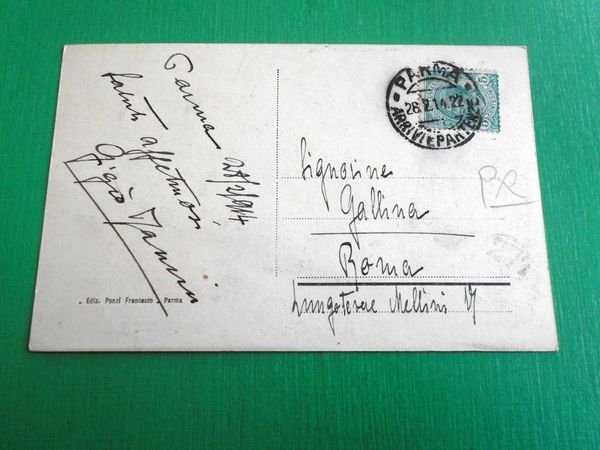 Parma 28/2/914
Saluti affettuosi
Gigio
PARMA
28.2.14.22
ARRIVI E PARTENZE
5
Signorine
Gallina
Roma
Lungotevere Mellini 17
PR
Ediz. Ponzi Francesco - Parma